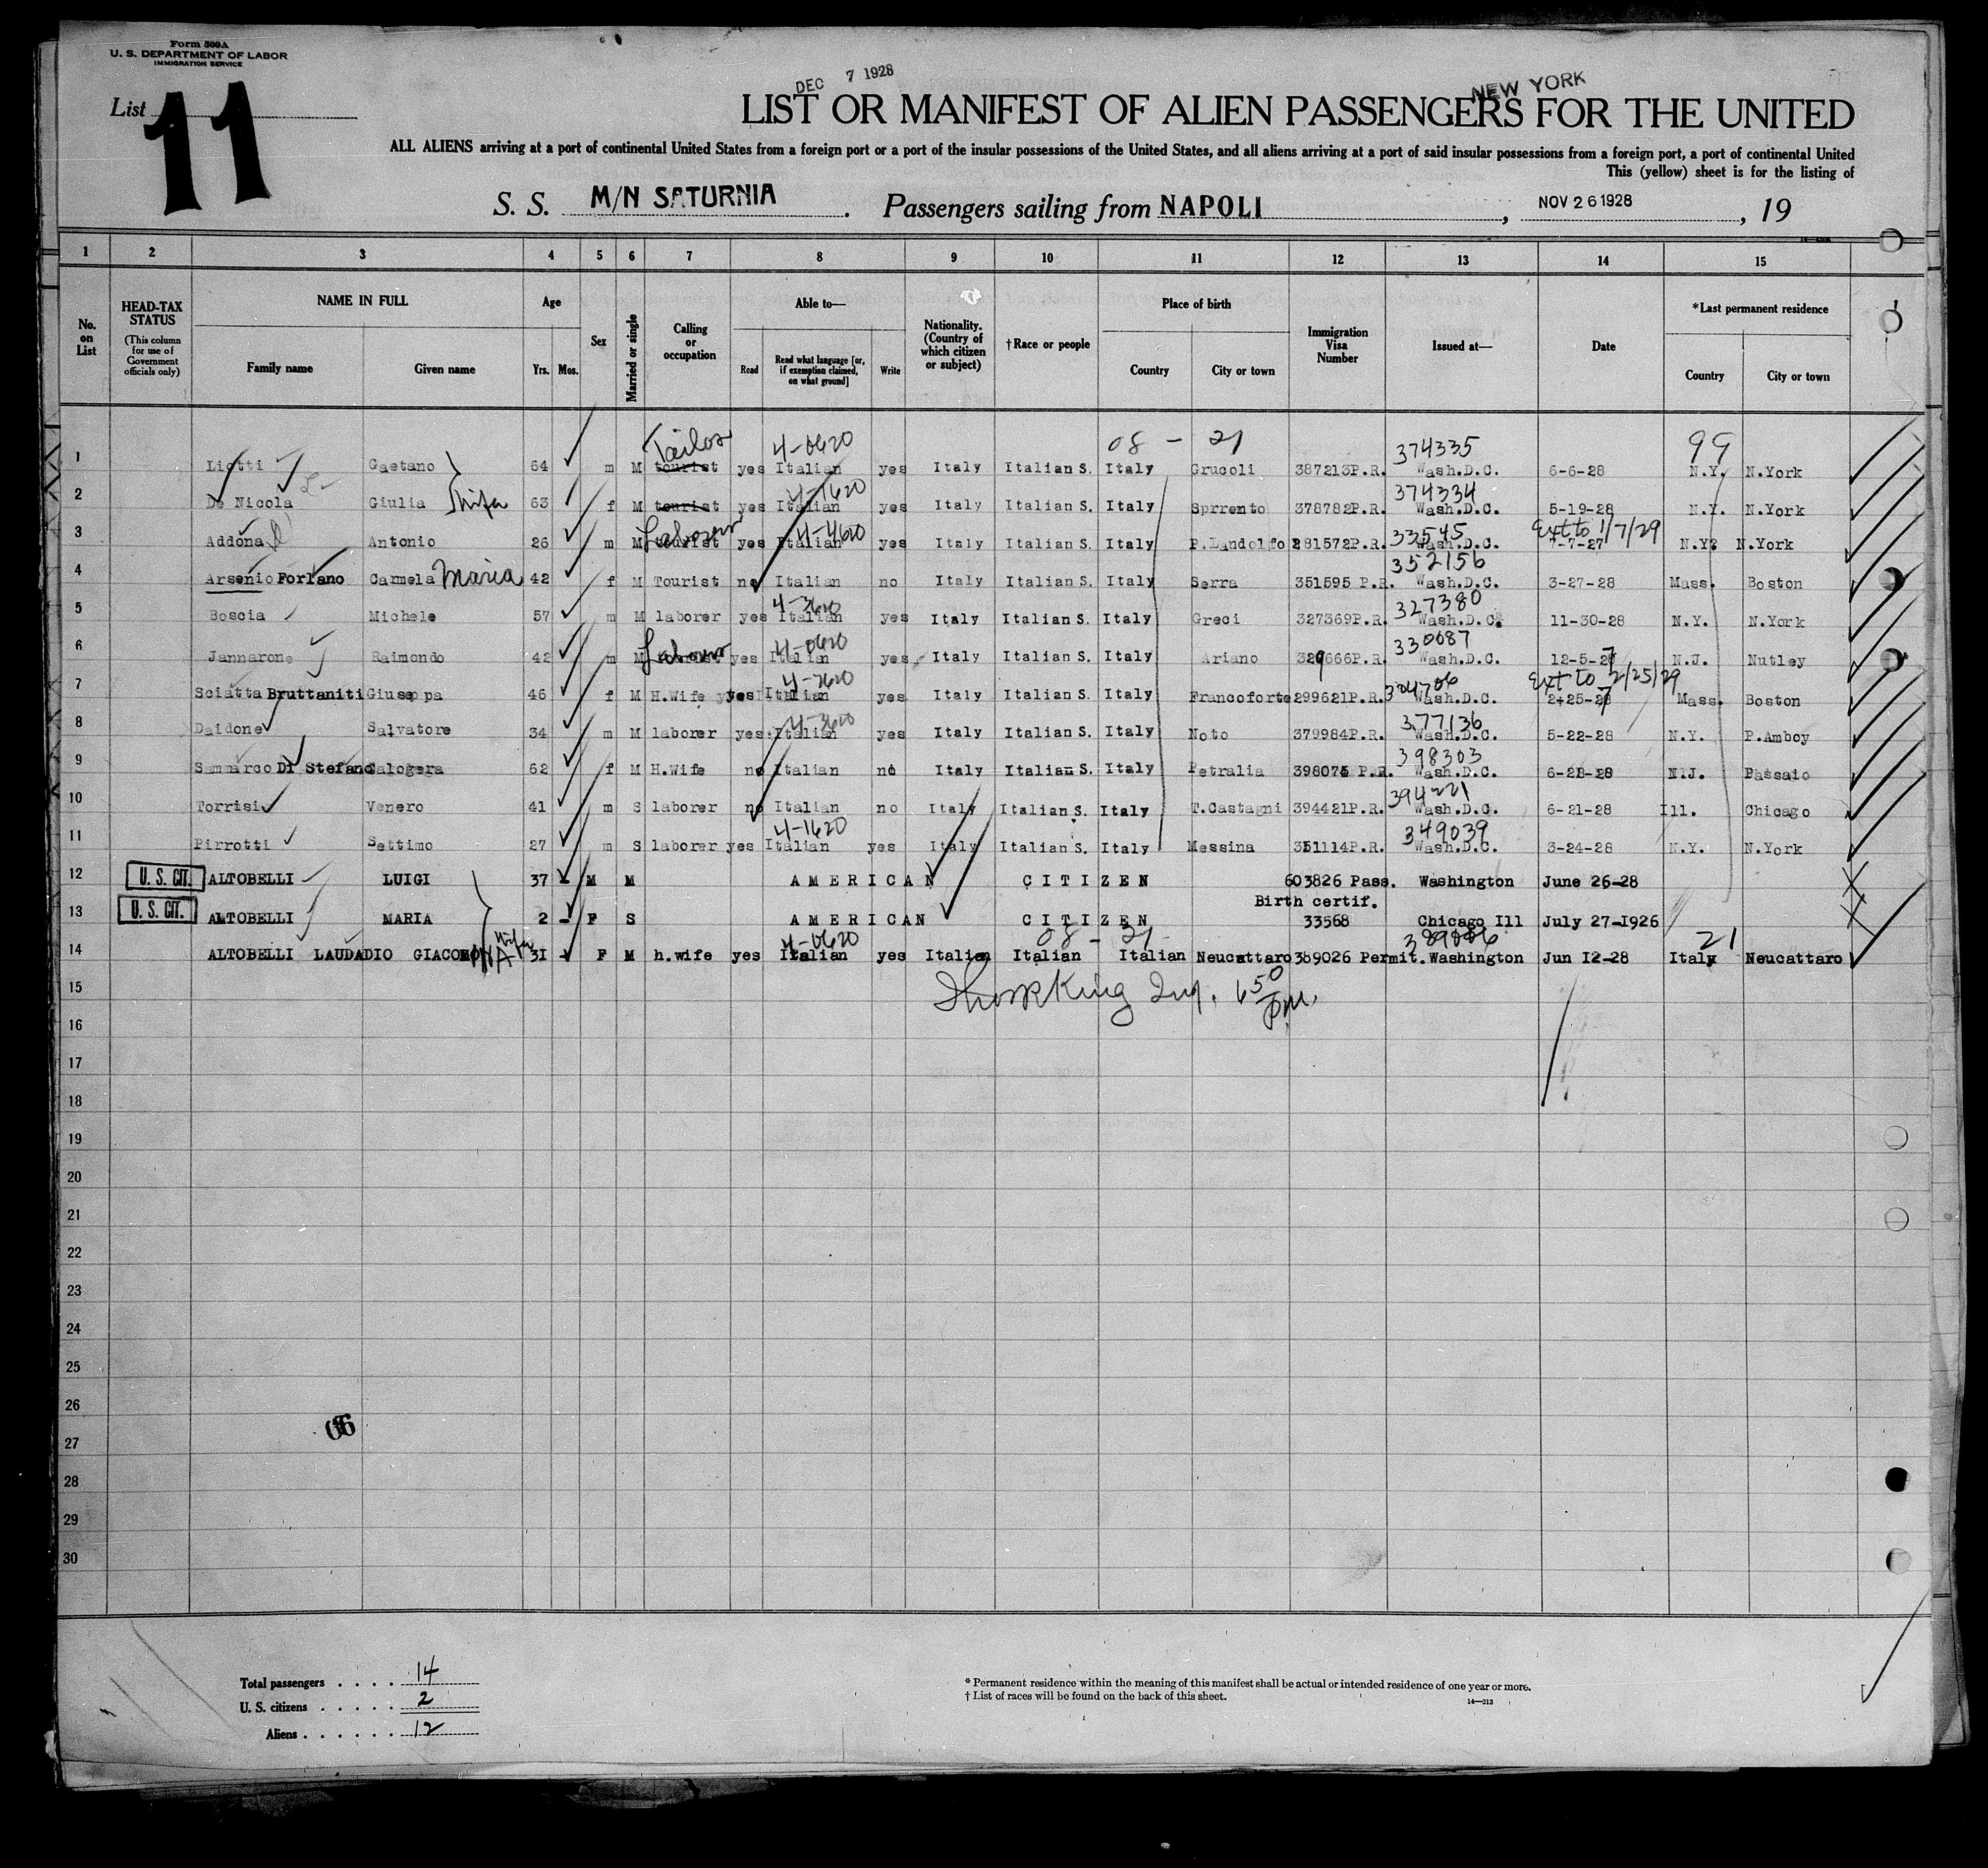 Form 500A
U. S. DEPARTMENT OF LABOR
IMMIGRATION SERVICE
List 11
DEC 7 1928
NEW YORK
LIST OR MANIFEST OF ALIEN PASSENGERS FOR THE UNITED
ALL ALIENS arriving at a port of continental United States from a foreign port or a port of the insular possessions of the United States, and all aliens arriving at a port of said insular possessions from a foreign port, a port of continental United
This (yellow) sheet is for the listing of
S. S. M/N SATURNIA. Passengers sailing from NAPOLI, NOV 26 1928, 19
1 2 3 4 5 6 7 8 9 10 11 12 13 14 15
No. on List
HEAD-TAX STATUS (This column for use of Government officials only)
NAME IN FULL
Family name Given name
Age
Yrs. Mos.
Sex
Married or single
Calling or occupation
Able to—
Read Read what language [or, if exemption claimed, on what ground] Write
Nationality. (Country of which citizen or subject)
†Race or people
Place of birth
Country City or town
Immigration Visa Number
Issued at—
Date
*Last permanent residence
Country City or town
Tailor 4-0620 08 - 21 374335 99
1 Liotti Gaetano 64 m M tourist yes Italian yes Italy Italian S. Italy Grucoli 387213P.R. Wash.D.C. 6-6-28 N.Y. N.York
4-1620 374334
2 De Nicola Giulia Wife 63 f M tourist yes Italian yes Italy Italian S. Italy Sprrento 378782P.R. Wash.D.C. 5-19-28 N.Y. N.York
Laborer 4-4620 33545 Ext to 1/7/29
3 Addona Antonio 26 m M tourist yes Italian yes Italy Italian S. Italy P.Landolfo 281572P.R. Wash.D.C. 7-7-27 N.Y. N.York
352156
4 Arsenio Forlano Carmela Maria 42 f M Tourist no Italian no Italy Italian S. Italy Serra 351595 P.R. Wash.D.C. 3-27-28 Mass. Boston
4-3620 327380
5 Boscia Michele 57 m M laborer yes Italian yes Italy Italian S. Italy Greci 327369P.R. Wash.D.C. 11-30-28 N.Y. N.York
Laborer 4-0620 330087
6 Jannarone Raimondo 42 m M tourist yes Italian yes Italy Italian S. Italy Ariano 329666P.R. Wash.D.C. 12-5-27 N.J. Nutley
4-2620 304706 Ext to 2/25/29
7 Sciatta Bruttaniti Giuseppa 46 f M H.Wife yes Italian yes Italy Italian S. Italy Francoforte 299621P.R. Wash.D.C. 2-25-27 Mass. Boston
4-3620 377136
8 Daidone Salvatore 34 m M laborer yes Italian yes Italy Italian S. Italy Noto 379984P.R. Wash.D.C. 5-22-28 N.Y. P.Amboy
398303
9 Sammarco Di Stefano Calogera 62 f M H.Wife no Italian no Italy Italian S. Italy Petralia 398075 P.R. Wash.D.C. 6-28-28 N.J. Passaic
394221
10 Torrisi Venero 41 m S laborer no Italian no Italy Italian S. Italy T.Castagni 394421P.R. Wash.D.C. 6-21-28 Ill. Chicago
4-1620 349039
11 Pirrotti Settimo 27 m S laborer yes Italian yes Italy Italian S. Italy Messina 351114P.R. Wash.D.C. 3-24-28 N.Y. N.York
12 U. S. CIT. ALTOBELLI LUIGI 37 - M M AMERICAN CITIZEN 603826 Pass. Washington June 26-28
Birth certif.
13 U. S. CIT. ALTOBELLI MARIA 2 - F S AMERICAN CITIZEN 33568 Chicago Ill July 27-1926
Wife 4-0620 08 - 21 21
14 ALTOBELLI LAUDADIO GIACOMINA 31 - F M h.wife yes Italian yes Italian Italian Italian Neucattaro 389026 Permit. Washington Jun 12-28 Italy Neucattaro
15
16
17
18
19
20
21
22
23
24
25
26
27
28
29
30
Total passengers . . . . 14
U. S. citizens . . . . . 2
Aliens . . . . . . 12
* Permanent residence within the meaning of this manifest shall be actual or intended residence of one year or more.
† List of races will be found on the back of this sheet.
14—213